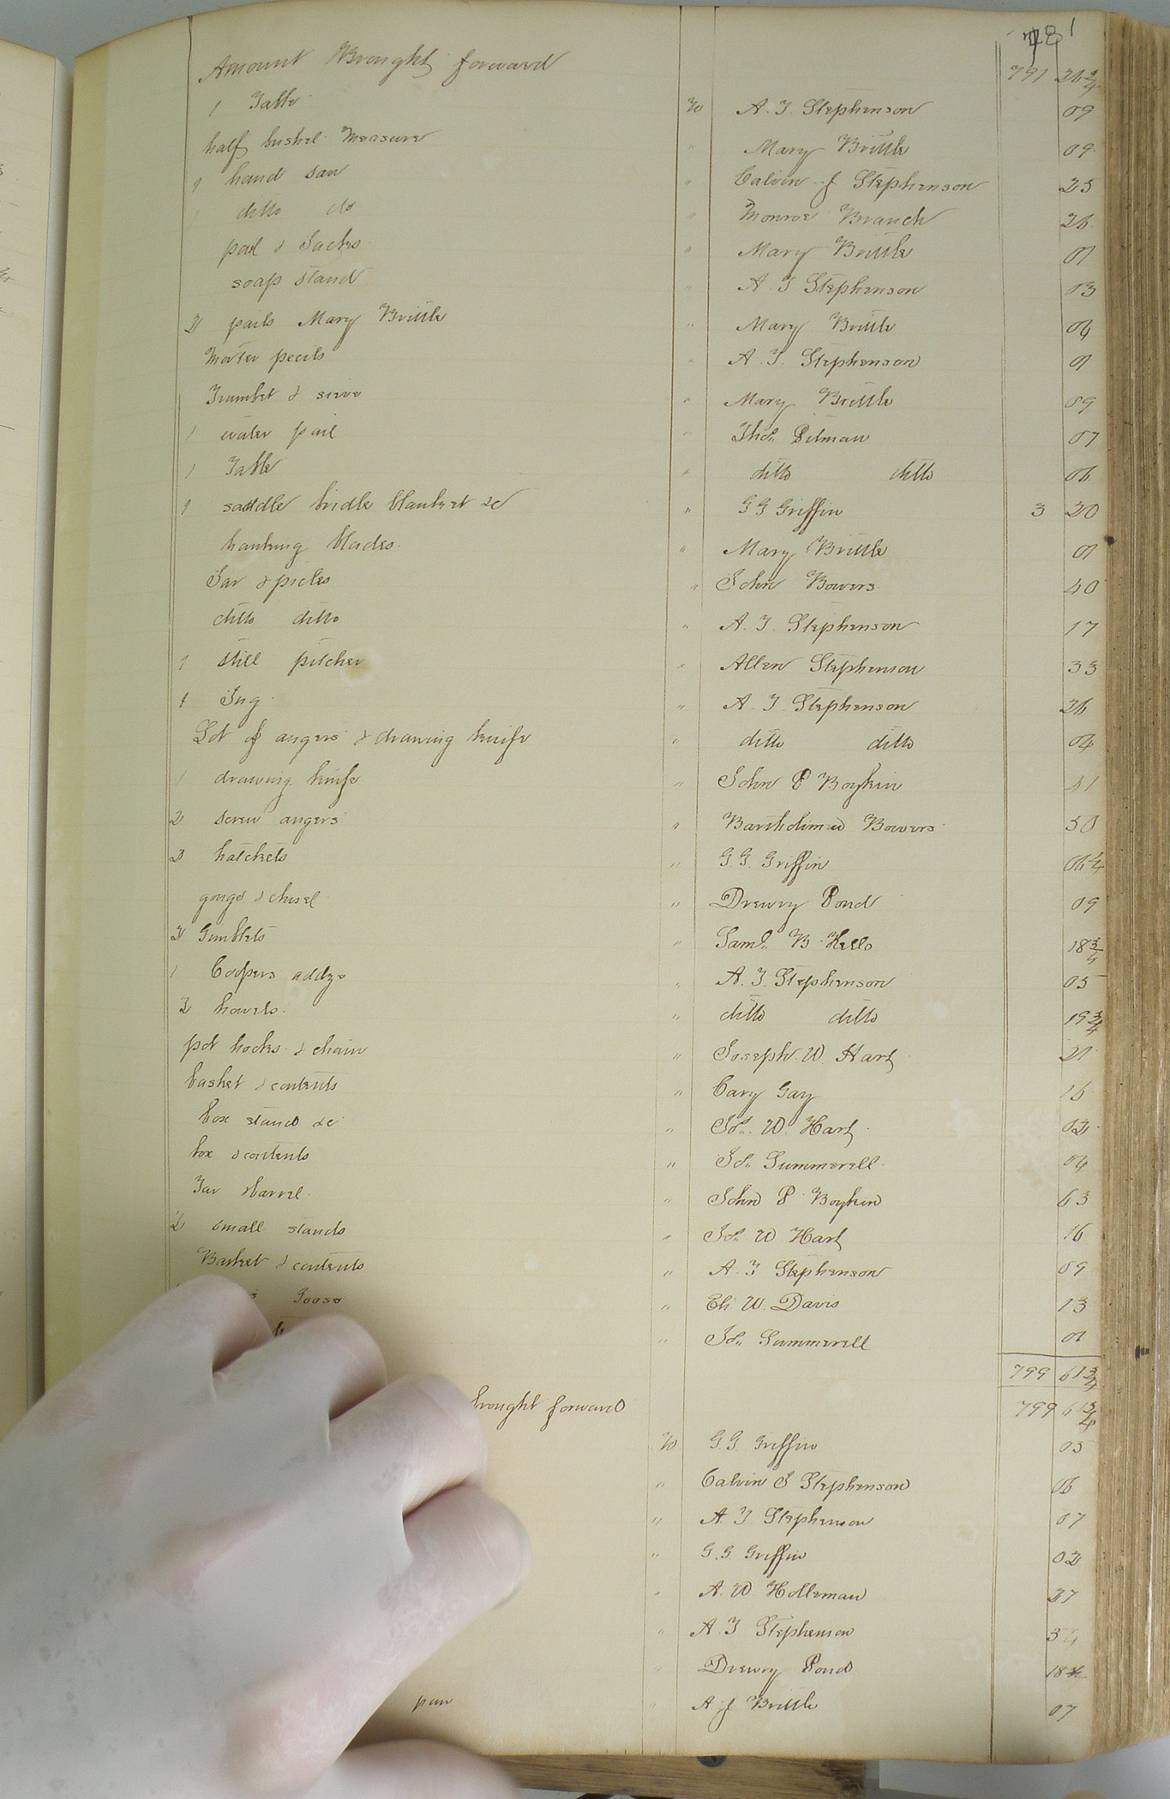 781
Amount Brought forward 791 26 3/4
1 Table To A. T. Stephenson 09
half bushel Measure " Mary Brittle 09
1 hand saw " Calvin J Stephenson 25
1 ditto do " Monroe Branch 26
pail & Sacks " Mary Brittle 01
soap stand " A. T Stephenson 03
2 pails Mary Brittle " Mary Brittle 04
Morter " A. T. Stephenson 01
Trumbet & " Mary Brittle 09
1 water pail " Thos. Pitman 07
1 Table " ditto ditto 06
1 saddle bridle blanket &c " G G Griffin 3 20
hauking blades " Mary Brittle 01
Jar & picles " John Bowers 40
ditto ditto " A. T. Stephenson 17
1 still pitcher " Allen Stephenson 33
1 Jug " A. T Stephenson 26
Lot of augers & drawing knife " ditto ditto 04
1 drawing knife " John P Boykin 41
2 screw augers " Bartholimed Bowers 50
2 hatchets " G. G. Griffin 06 1/4
gouge & chisel " Drewry Pond 09
2 Gimblets " Saml. B. Kello 18 3/4
1 Coopers addze " A. T. Stephenson 05
2 howels " ditto ditto 19 3/4
pot hooks & chain " Joseph W. Hart 21
basket & contents " Cary Gay 16
box stand &c " Jos. W. Hart 02
box & contents " Jos. Summerell 04
Tar barrel " John P. Boykin 63
2 small stands " Jos. W Hart 16
Basket & contents " A. T Stephenson 09
Goose " Eli W. Davis 13
" Jos. Summerell 01
799 61 3/4
brought forward 799 61 3/4
To G. G. Griffin 05
" Calvin J Stephenson 06
" A T Stephenson 07
" G. G. Griffin 02
" A. W Holleman 27
" A. T Stephenson
" Drewry Pond 18
pan " A J Brittle 07